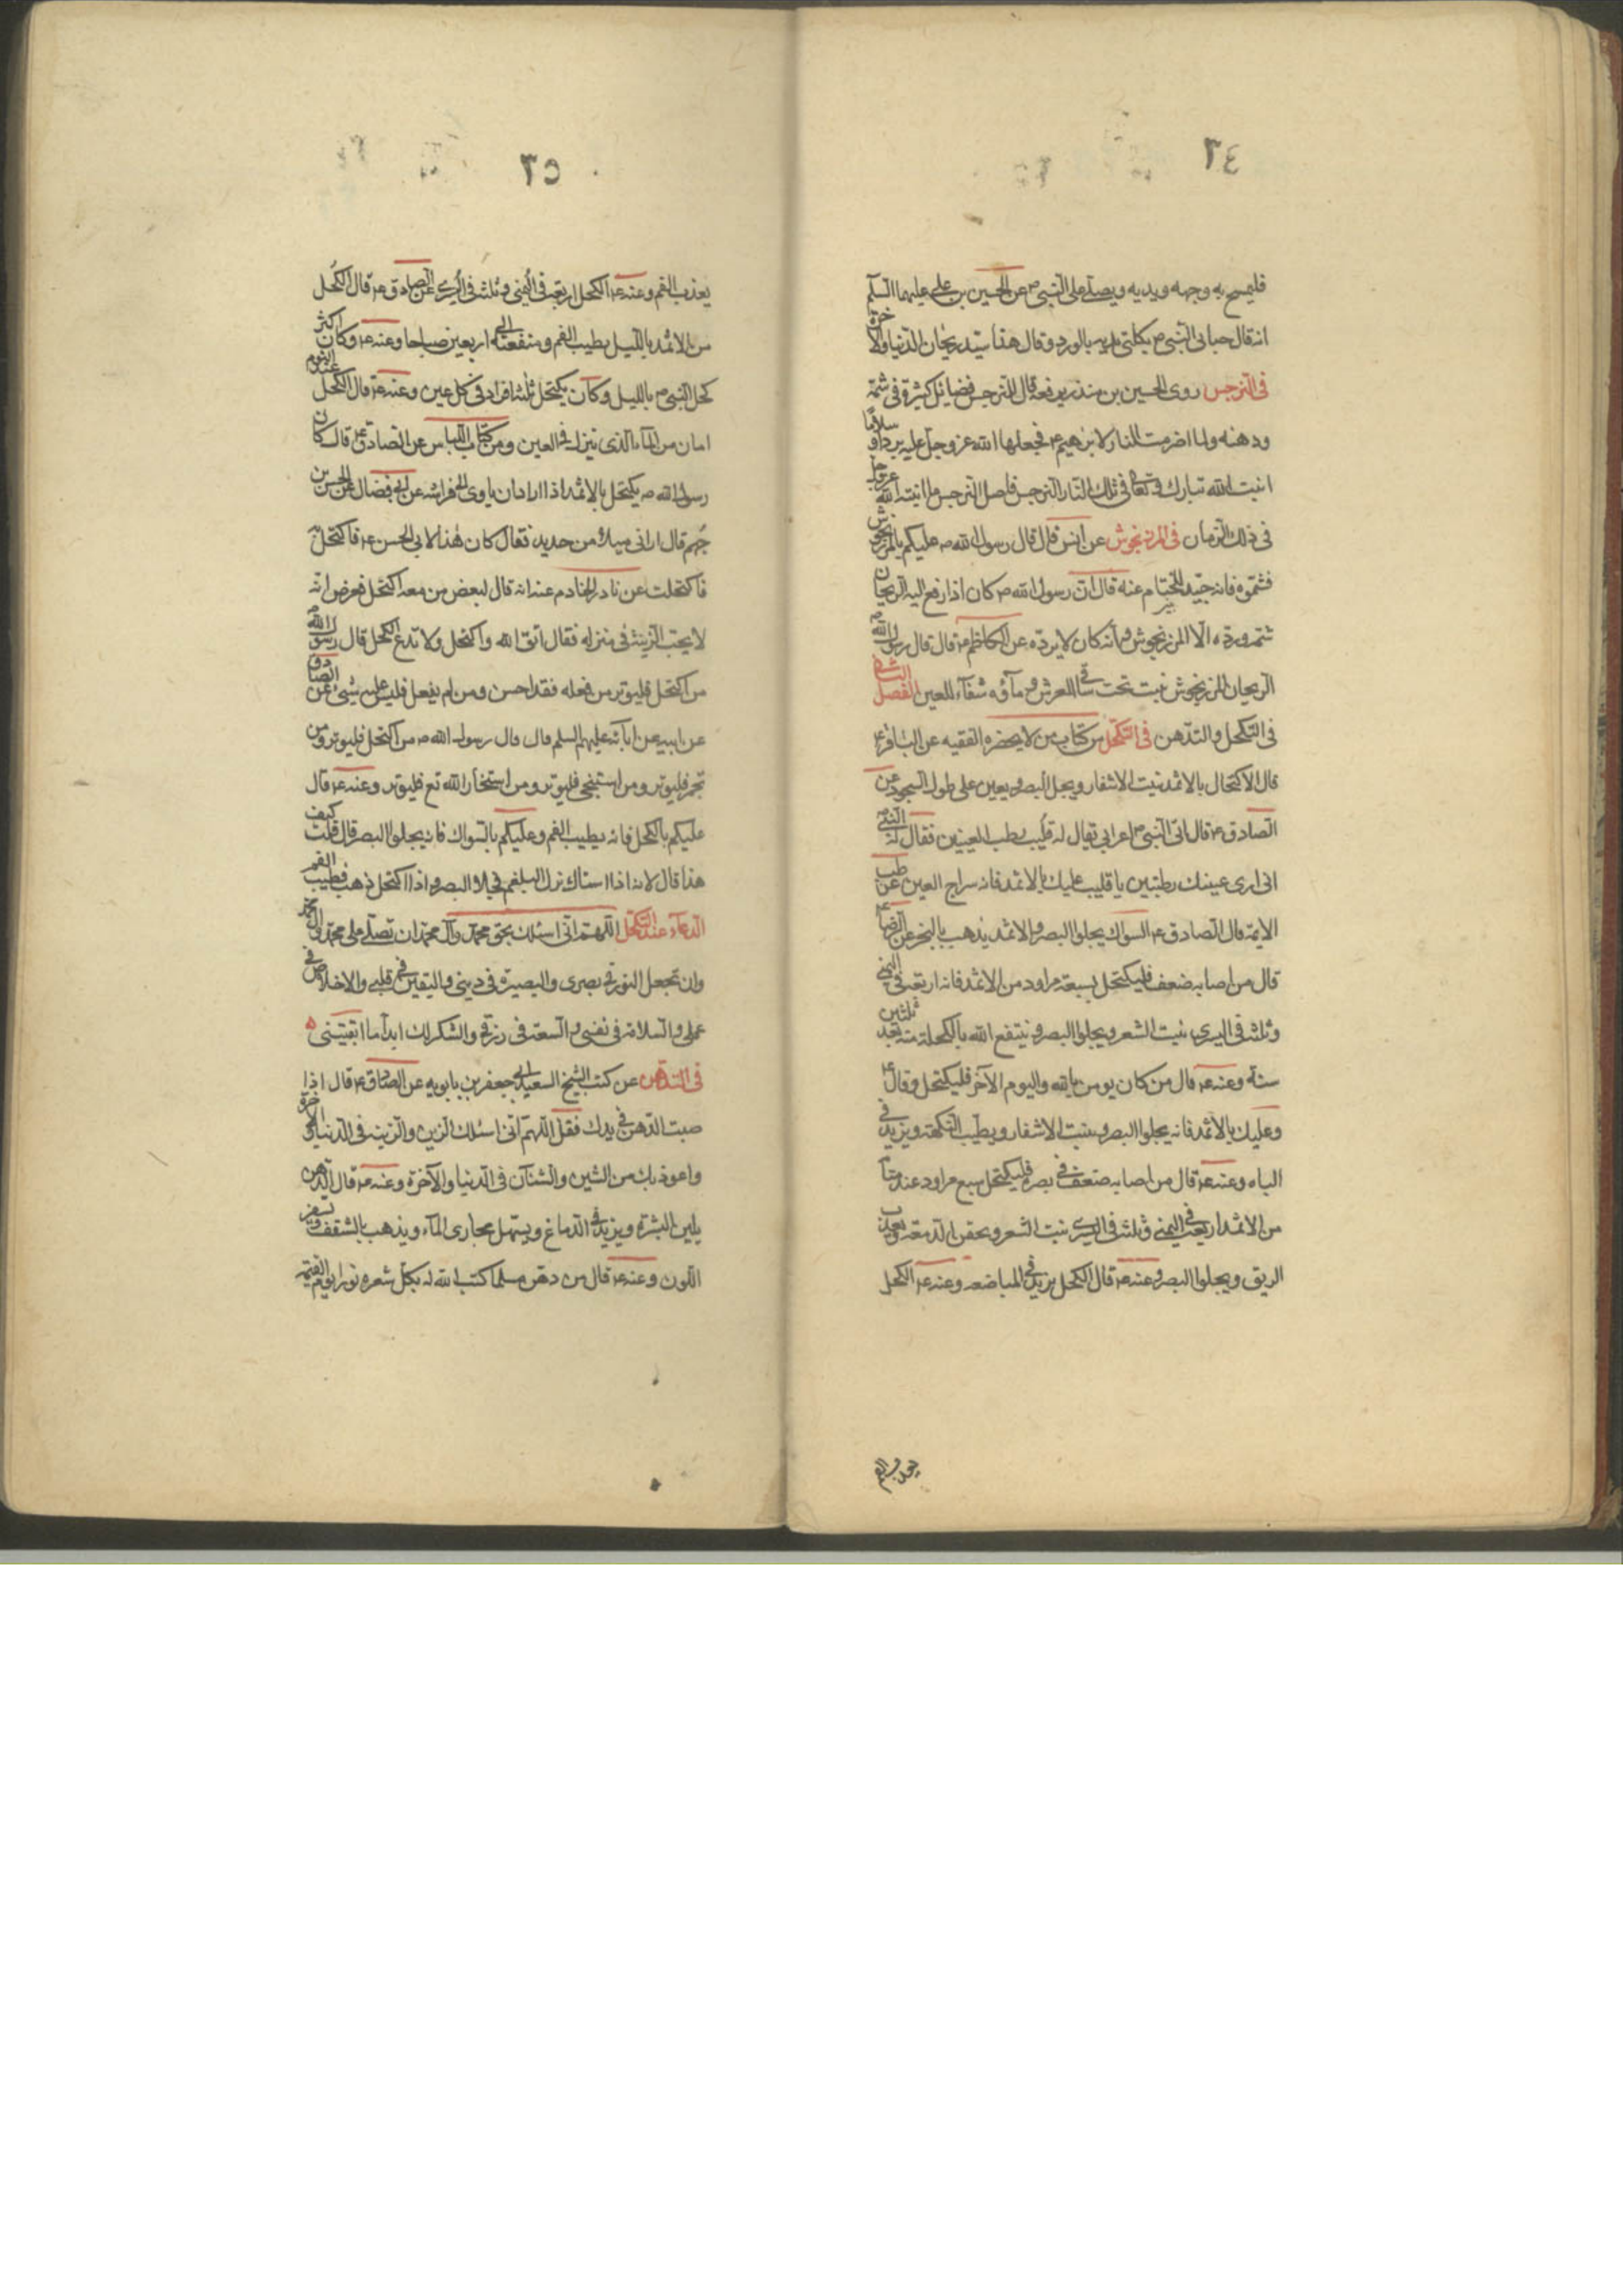 ٣٤
فليمسح به وجهه ويديه ويصلي على النبي ص عن الحسين بن علي عليهما السلم
انه قال حباني النبي ص بكلتي يديه بالورد وقال هذا سيد ريحان الدنيا والاخرة
في النرجس روى الحسين بن منذر يرفعه قال للنرجس فضايل كثيرة في شمّه
ودهنه ولما اضرمت النار لابرهيم ع فجعلها الله عز وجل عليه بردا وسلاما
انبت الله تبارك وتعالى في تلك النار النرجس فاصل النرجس مما انبته الله عز وجل
في ذلك الزمان في المرزنجوش عن انس قال قال رسول الله ص عليكم بالمرزنجوش
فشموه فانه جيد للخشام عنه قال ان رسول الله ص كان اذا رفع اليه الريحان
شمه ورده الا المرزنجوش فانه كان لا يرده عن الكاظم ع قال قال رسول الله ص
الريحان المرزنجوش نبت تحت ساق العرش وماؤه شفاء للعين الفصل
في التكحل والتدهن في التكحل من كتاب من لا يحضره الفقيه عن الباقر ع
قال الاكتحال بالاثمد ينبت الاشفار ويحد البصر ويعين على طول السجود عن
الصادق ع قال اتى النبي ص اعرابي يقال له قليب رطب العينين فقال له النبي ص
اني ارى عينيك رطبتين يا قليب عليك بالاثمد فانه سراج العين عن طب
الايمة قال الصادق ع السواك يجلوا البصر والاثمد يذهب بالبخر عن الرضا ع
قال من اصابه ضعف فليكتحل بسبعة مراود من الاثمد فانه اربعة في اليمنى
وثلثة في اليسرى ينبت الشعر ويجلوا البصر وينتفع الله بالكحلة منه بعد ثلثين
سنة وعنه ع قال من كان يومن بالله واليوم الآخر فليكتحل وقال ع
وعليك بالاثمد فانه يجلوا البصر وينبت الاشفار ويطيب النكهة ويزيد في
الباه وعنه ع قال من اصابه ضعف في بصره فليكتحل سبع مراود عند منامه
من الاثمد اربعة في اليمنى وثلثة في اليسرى ينبت الشعر ويحقن الدمعة ويعذب
الريق ويجلوا البصر وعنه ع قال الكحل يزيد في المباضعه وعنه ع الكحل
يعذب الفم
٣٥
يعذب الفم وعنه ع الكحل اربعة في اليمنى وثلثة في اليسرى عن الصادق ع قال الكحل
من الاثمد بالليل يطيب الفم ومنفعته الى اربعين صباحا وعنه ع وكان اكثر
كحل النبي ص بالليل وكان يكتحل ثلثة افراد في كل عين وعنه ع قال الكحل عند النوم
امان من الماء الذي ينزل في العين ومن كتاب اللباس عن الصادق ع قال كان
رسول الله ص يكتحل بالاثمد اذا اراد ان ياوى الى فراشه عن ابن فضال عن الحسن بن
جهم قال اراني ميلا من حديد فقال كان هذا لابي الحسن ع فاكتحل به
فاكتحلت عن نادر الخادم عنه انه قال لبعض من معه اكتحل فعرض انه
لا يحب الزينة في منزله فقال اتق الله واكتحل ولا تدع الكحل قال رسول الله ص
من اكتحل فليوتر من فعله فقد احسن ومن لم يفعل فليس عليه شيء عن الصادق
عن ابيه عن ابائه عليهم السلم قال قال رسول الله ص من اكتحل فليوتر ومن
تجمر فليوتر ومن استنجى فليوتر ومن استخار الله تع فليوتر وعنه ع قال
عليكم بالكحل فانه يطيب الفم وعليكم بالسواك فانه يجلوا البصر قال قلت كيف
هذا قال لانه اذا استاك نزل البلغم فجلا البصر واذا اكتحل ذهب فطيب الفم
الدعاء عند التكحل اللهم اني اسئلك بحق محمد وآل محمد ان تصلي على محمد وآل محمد
وان تجعل النور في بصري والبصيرة في ديني واليقين في قلبي والاخلاص في
عملي والسلامة في نفسي والسعة في رزقي والشكر لك ابدا ما ابقيتني
في التدهن عن كتب الشيخ السعيد ابي جعفر بن بابويه عن الصادق ع قال اذا
صببت الدهن في يدك فقل اللهم اني اسئلك الزين والزينة في الدنيا والاخرة
واعوذ بك من الشين والشنآن في الدنيا والآخرة وعنه ع قال الدهن
يلين البشرة ويزيد في الدماغ ويسهل مجارى الماء ويذهب بالشقف ويسفر
اللون وعنه ع قال من دهن مسلما كتب الله له بكل شعره نورا يوم القيمة